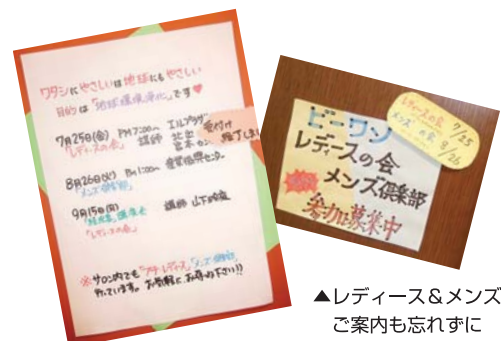 ワタシにやさしいは地球にもやさしい
目的は「地球環境浄化」です♥
7月25日(金) PM7:00〜 エルプラザ
「レディースの会」 講師
受付け
終了しまし
8月26日(火) PM1:00〜 産業振興センター
「メンズ倶楽部」
9月15日(月)
講師 山下
「レディースの会」
※サロン内でも「プチ・レディース」「メンズ倶楽部」
行っています。お気軽にお尋ね下さい!!
レディースの会 7/25
メンズの会 8/26
ビーワン
レディースの会
メンズ倶楽部
参加募集中
▲レディース&メンズ
ご案内も忘れずに